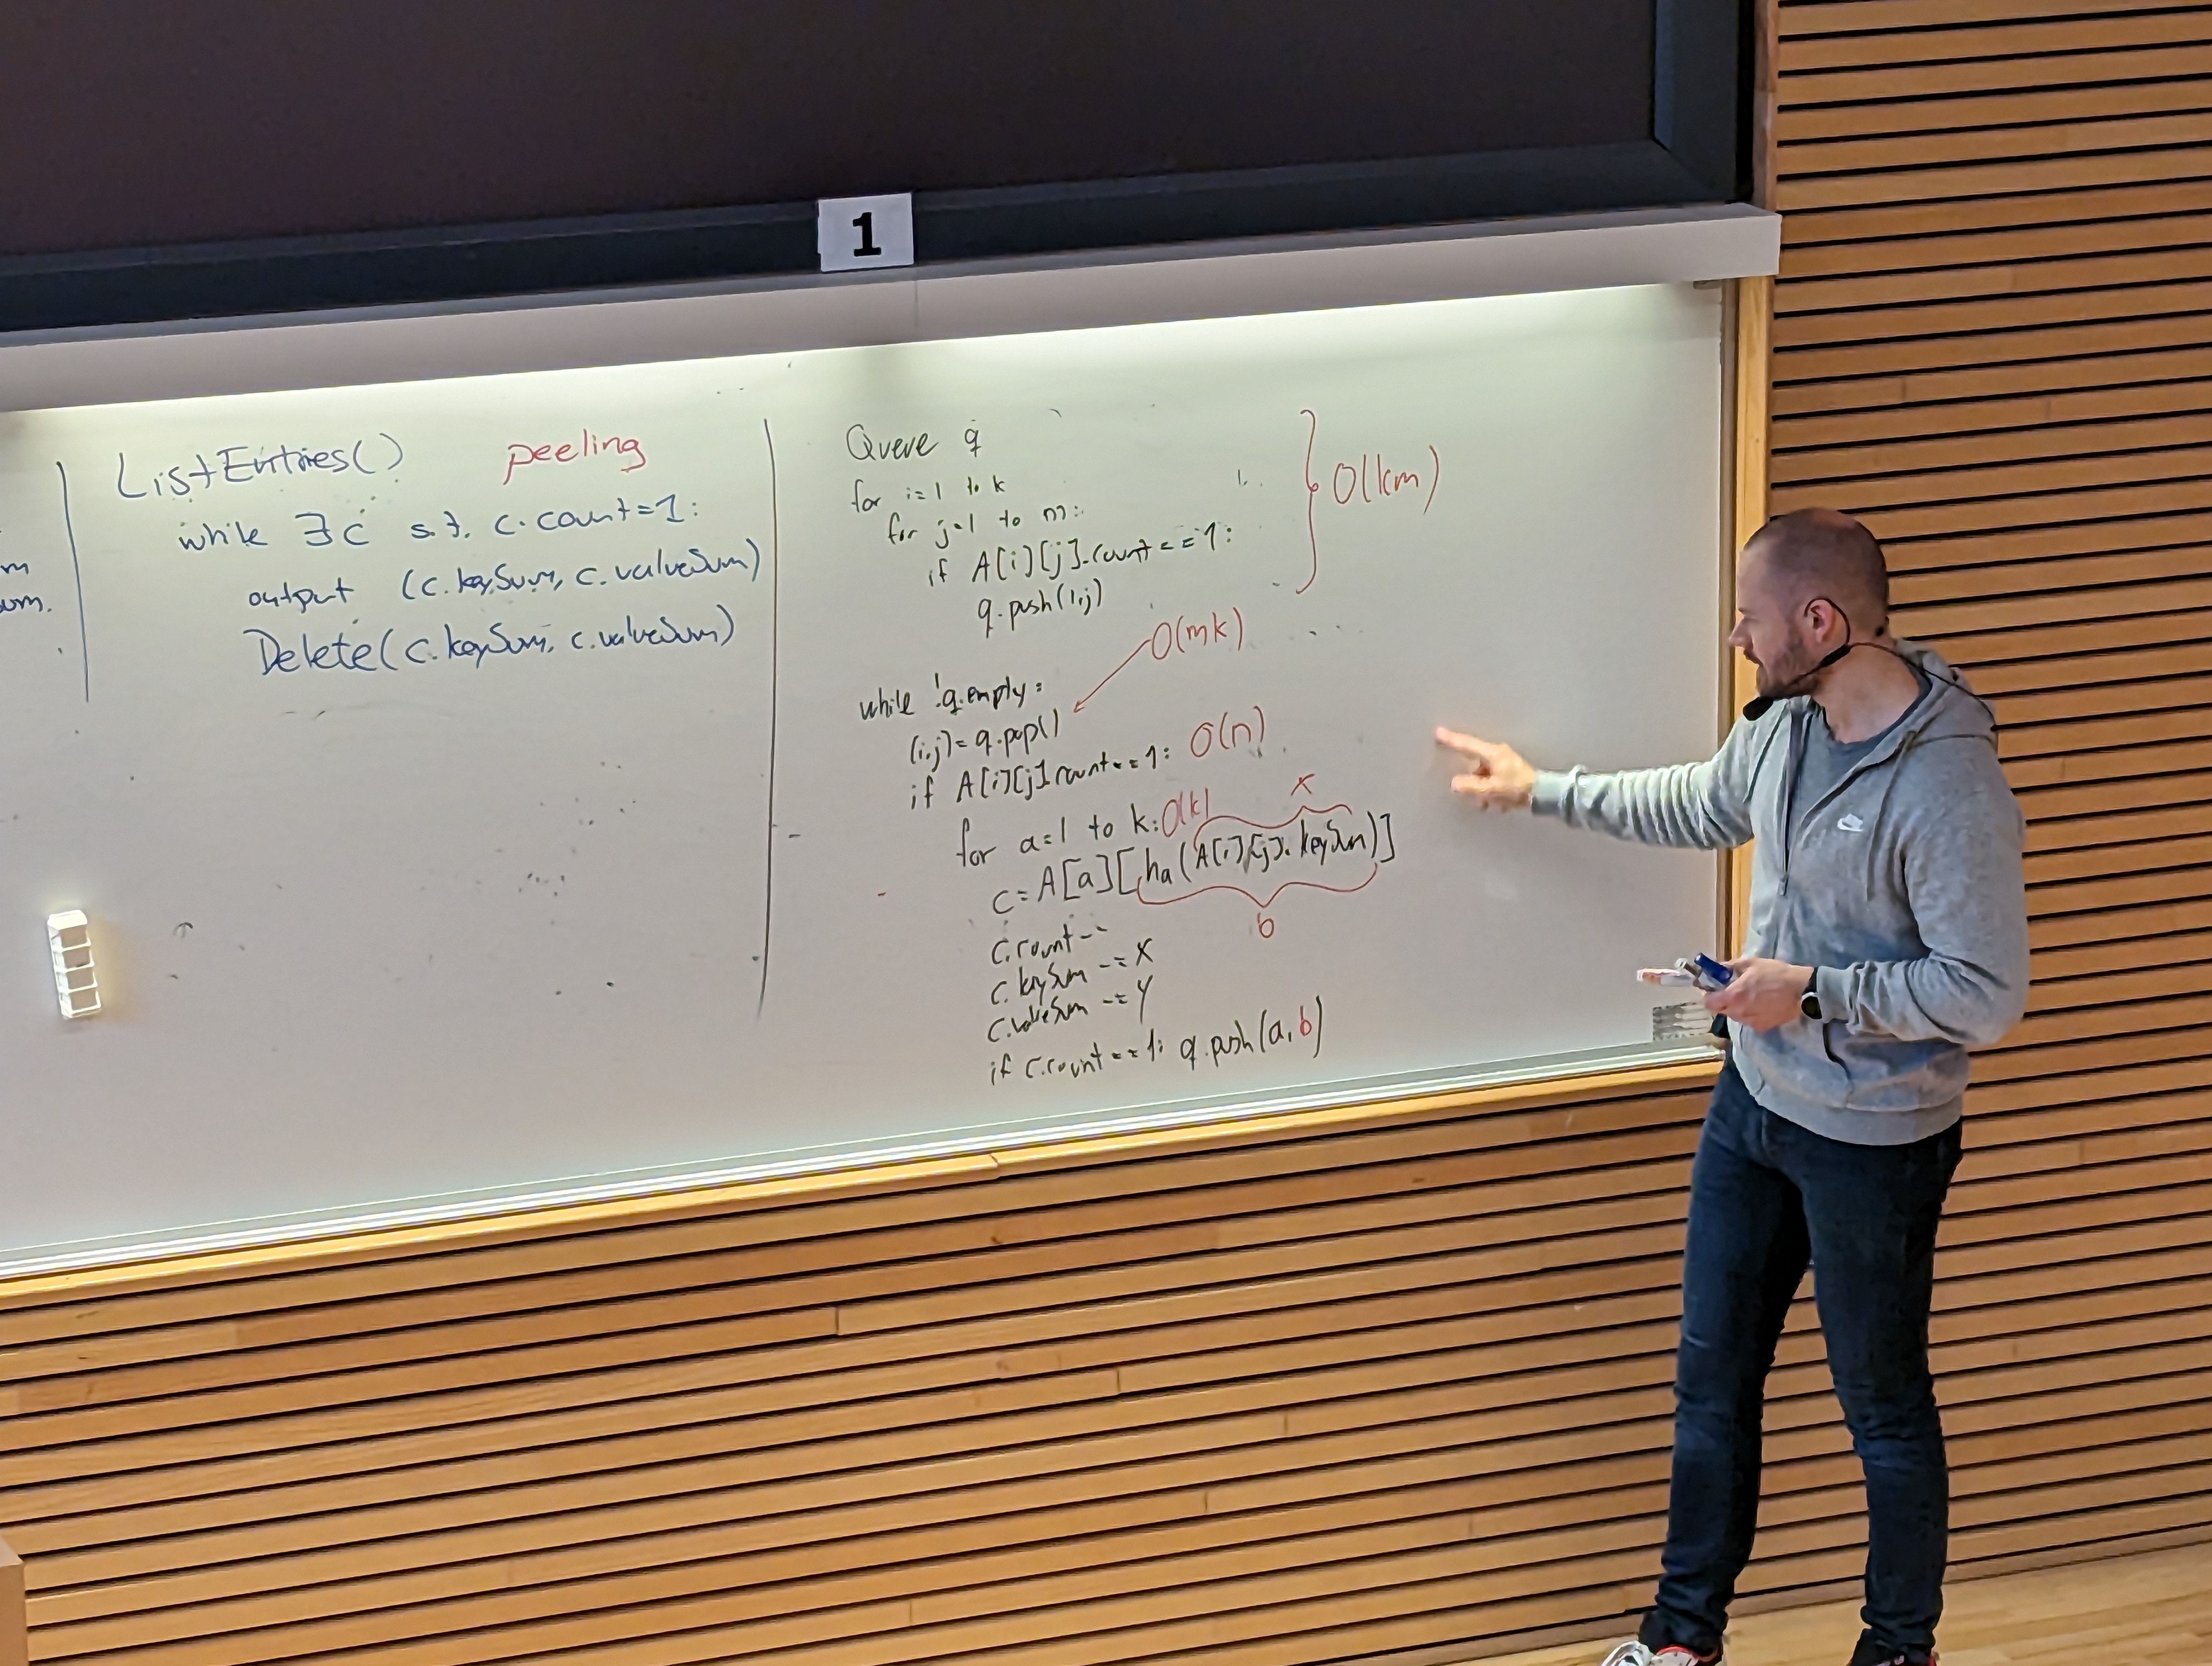 1
m
um.
ListEntries() peeling
while ∃c s.t. c.count=1:
output (c.keySum, c.valueSum)
Delete(c.keySum, c.valueSum)
Queue q
for i=1 to k
for j=1 to m:
if A[i][j].count==1:
q.push(i,j)
O(km)
O(mk)
while !q.empty:
(i,j)=q.pop()
if A[i][j].count==1: O(n)
x
for a=1 to k: O(k)
c=A[a][ha(A[i][j].keySum)]
b
c.count--
c.keySum -= x
c.valueSum -= y
if c.count==1: q.push(a,b)